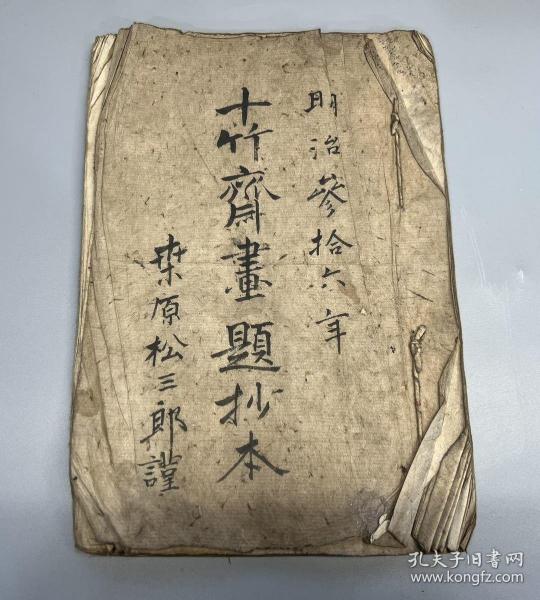 明治参拾六年
十竹齋畫題抄本
桒原松三郎謹
孔夫子旧书网
www.kongfz.com